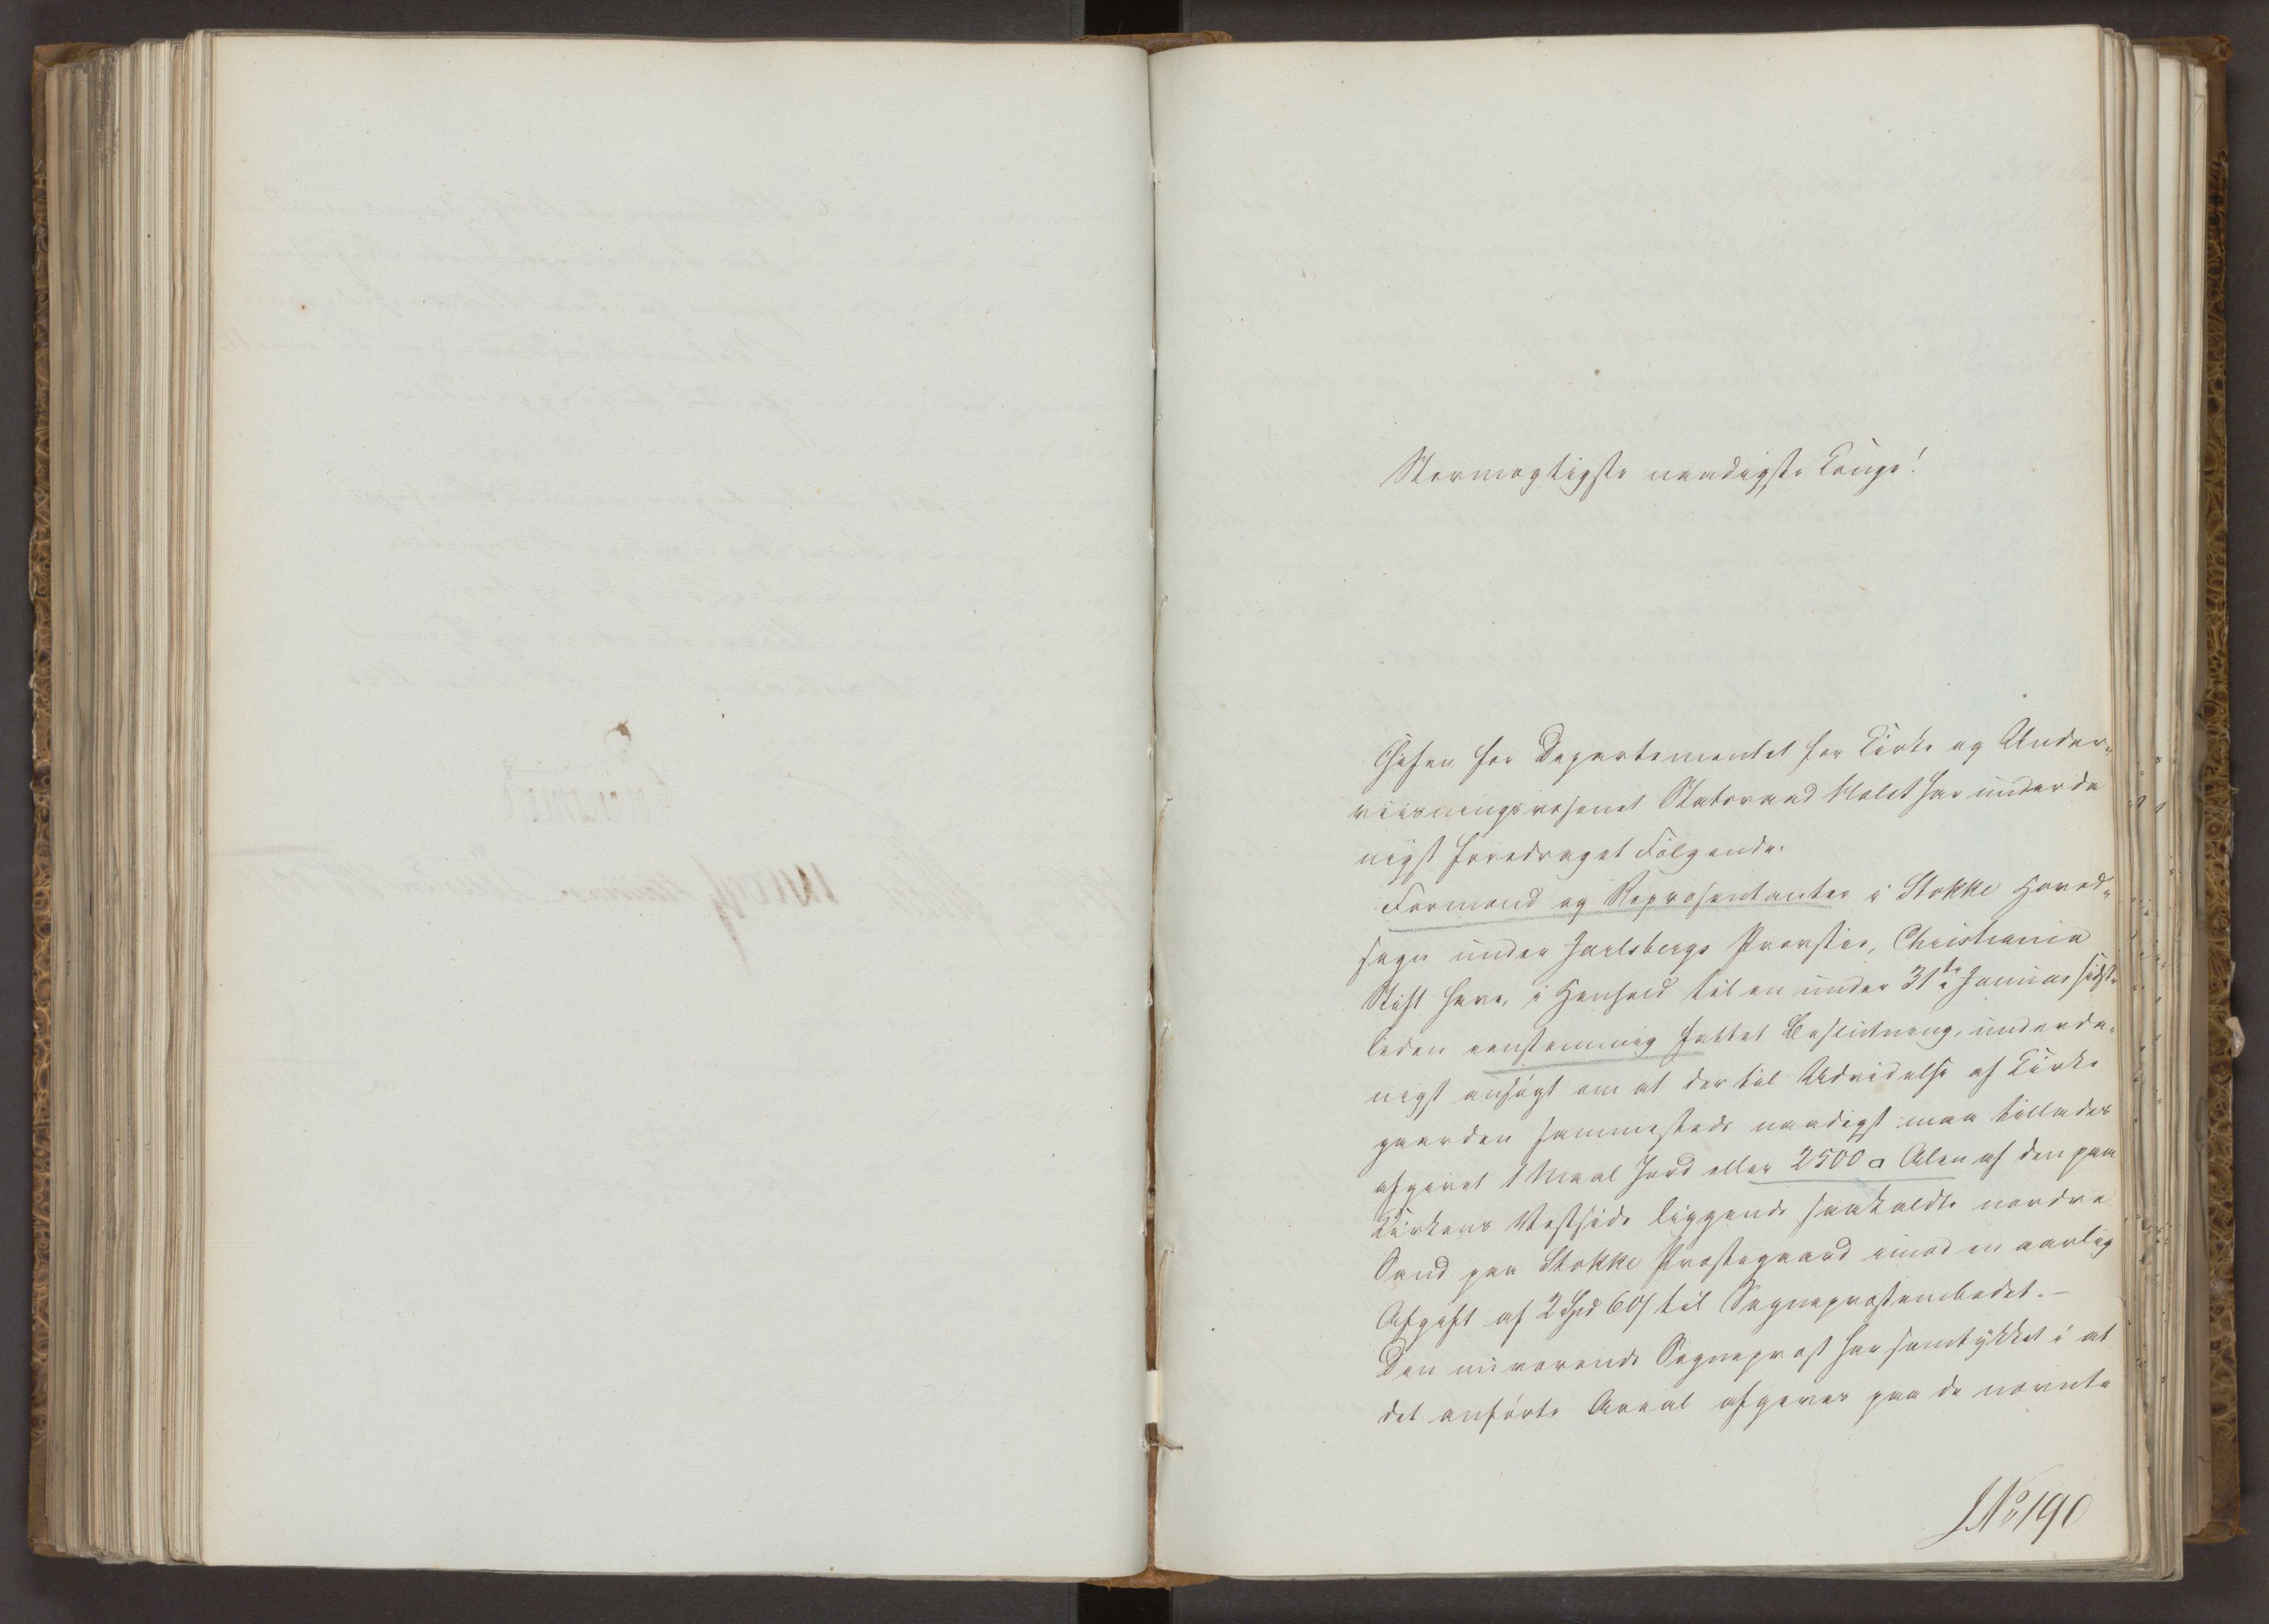 Stormægtigste naadigste Konge!
Chefen for Departementet for Kirke og Under-
viisningsvæsenet Statsraad Holst har underda
nigst foredraget Følgende.
Formænd og Repræsentanter i Stokke Hoved-
sogn under Jarlsbergs Provstie, Christiania
Stift have, i Henhold til en under 31te Januar sidst-
leden eenstemmig fattet Beslutning, underda-
nigst ansøgt om at der til Udvidelse af Kirke
gaarden sammesteds naadigst maa tillades
afgivet 1 Maal Jord eller 2500 □ Alen af den paa
Kirkens Vestside liggende saakaldte nordre
Sand paa Stokke Præstegaard imod en aarlig
Afgift af 2 Spd 60 s til Sognepræstembedet. –
Den nuværende Sognepræst har samtykket i at
det anførte Areal afgives paa de nævnte
No 190